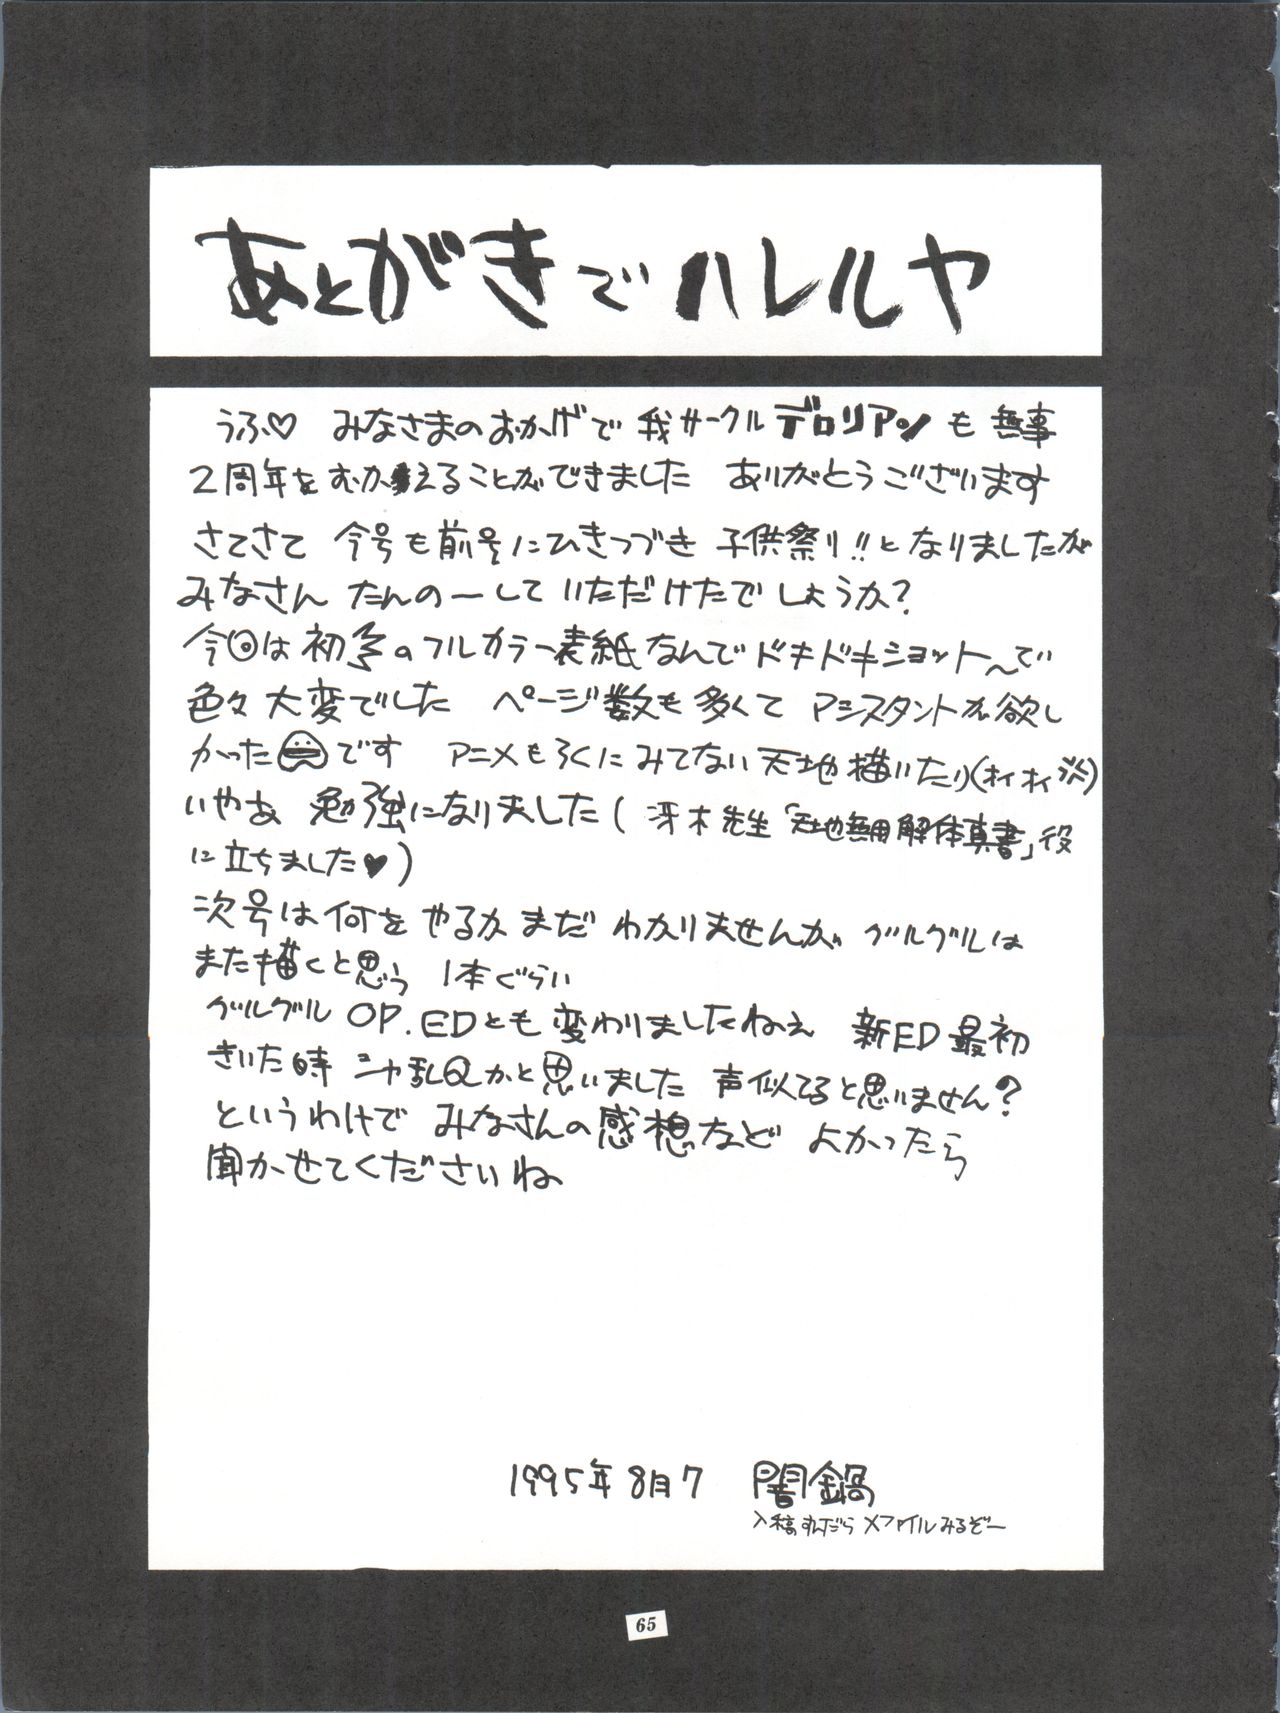 あとがきでハレルヤ
うふ♡ みなさまのおかげで我サークルデロリアンも無事
2周年をむかえることができました ありがとうございます
さてさて 今号も前号にひきつづき 子供祭り!!となりましたが
みなさん たんのーして いただけたでしょうか?
今回は初の フルカラー表紙なんでドキドキショットで
色々大変でした ページ数も多くて アシスタントが欲し
かったです アニメもろくにみてない天地描いたり(オイオイ)
いやあ 勉強になりました(冴木先生「天地無用解体真書」役
に立ちました♥)
次号は何をやるかまだ わかりませんが グルグルは
また描くと思う 1本ぐらい
グルグル OP.EDとも変わりましたねぇ 新ED最初
きいた時 シャ乱Qかと思いました 声似てると思いません?
というわけで みなさんの感想など よかったら
聞かせてくださいね
1995年8月7 闇鍋
入稿すんだら Xファイルみるぞー
65